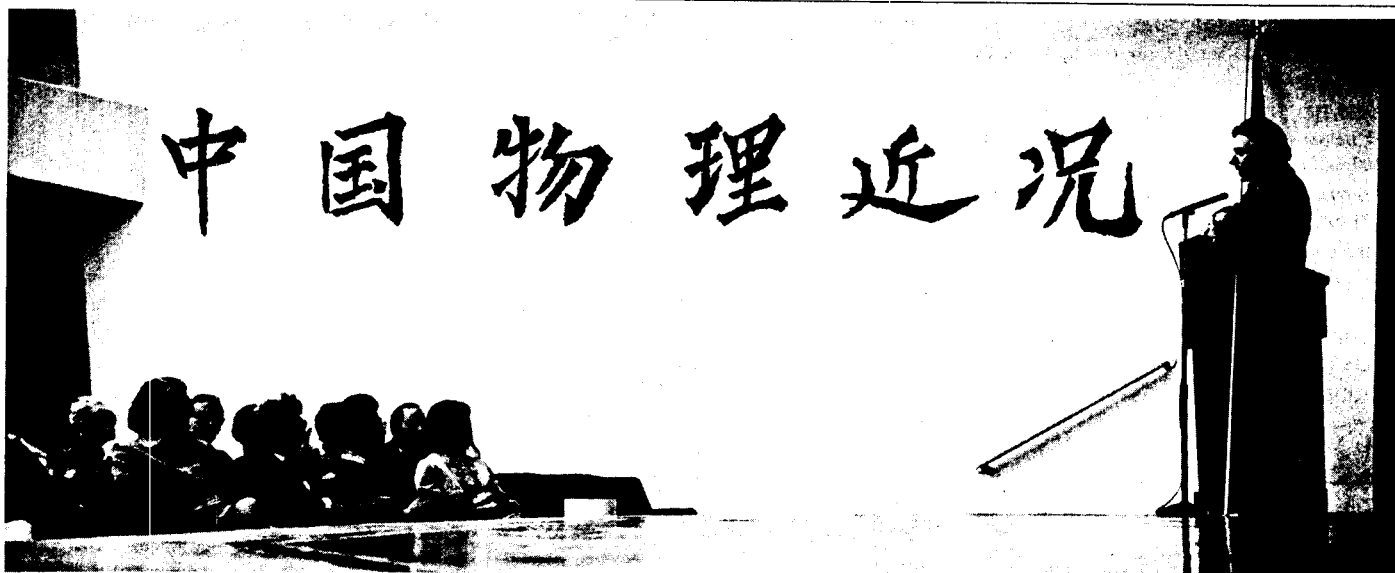 中国物理近况